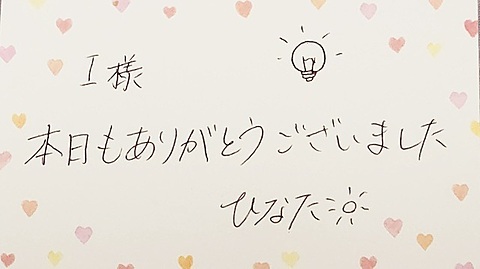 I様
本日もありがとうございました
ひなた